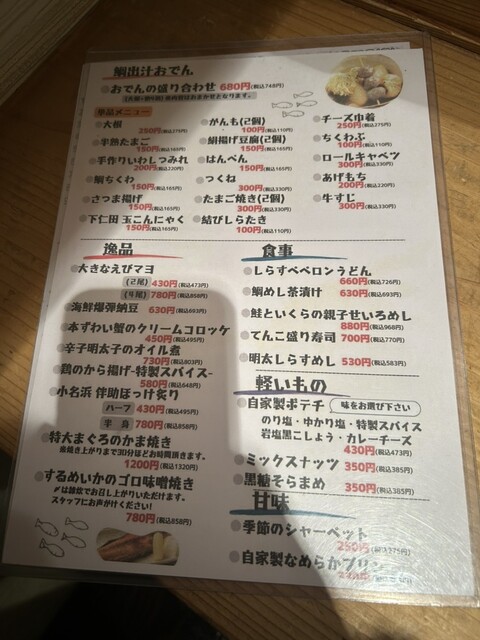 鯛出汁おでん
おでんの盛り合わせ 680円(税込748円)
単品メニュー
大根
250円(税込275円)
半熟たまご
150円(税込165)
手作りいわしつみれ
200円(税込220)
鯛ちくわ
150円(税込165)
さつま揚げ
150円(税込165)
下仁田 玉こんにゃく
150円(税込165)
がんも(2個)
100円(税込110)
絹揚げ豆腐(2個)
150円(税込165)
はんぺん
150円(税込165)
つくね
300円(税込330)
たまご焼き(2個)
300円(税込330)
結びしらたき
100円(税込110)
チーズ巾着
250円(税込275)
ちくわぶ
100円(税込110)
ロールキャベツ
300円(税込330)
あげもち
200円(税込220)
牛すじ
300円(税込330)
逸品
大きなえびマヨ
(2尾) 430円(税込473円)
(4尾) 780円(税込858円)
海鮮爆弾納豆 630円(税込693)
本ずわい蟹のクリームコロッケ
450円(税込495円)
辛子明太子のオイル煮
730円(税込803)
鶏のから揚げ-特製スパイス-
580円(税込648)
小名浜 伴助ほっけ炙り
ハーフ 430円(税込495)
半身 780円(税込858円)
特大まぐろのかま焼き
※焼き上がりまで30分ほどお時間頂きます。
1200円(税込1320)
するめいかのゴロ味噌焼き
〆は雑炊でお召し上がりいただけます。
スタッフにお声がけください!
780円(税込858)
食事
しらすペペロンうどん
660円(税込726)
鯛めし茶漬け 630円(税込693)
鮭といくらの親子せいろめし
880円(税込968)
てんこ盛り寿司 700円(税込770)
明太しらすめし 530円(税込583)
軽いもの
自家製ポテチ 味をお選び下さい
のり塩・ゆかり塩・特製スパイス
岩塩黒こしょう・カレーチーズ
430円(税込473)
ミックスナッツ 350円(税込385)
黒糖そらまめ 350円(税込385)
甘味
季節のシャーベット
250円(税込275)
自家製なめらかプリン